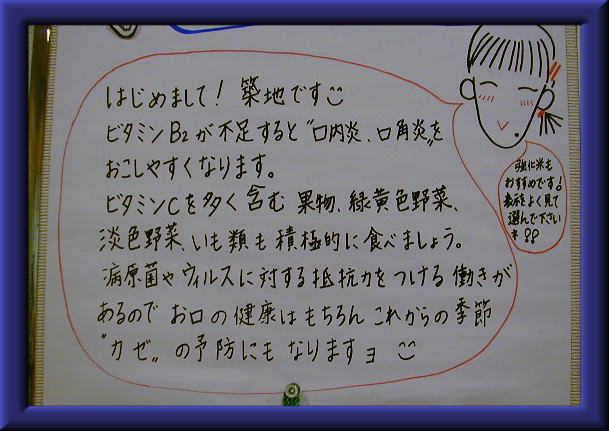 はじめまして！築地です
ビタミンB2が不足すると"口内炎、口角炎"を
おこしやすくなります。
ビタミンCを多く含む果物、緑黄色野菜、
淡色野菜、いも類も積極的に食べましょう。
病原菌やウィルスに対する抵抗力をつける働きが
あるので お口の健康はもちろん これからの季節
"カゼ"の予防にもなりますョ
強化米も
おすすめです♪
表示をよく見て
選んで下さい
ネ!!